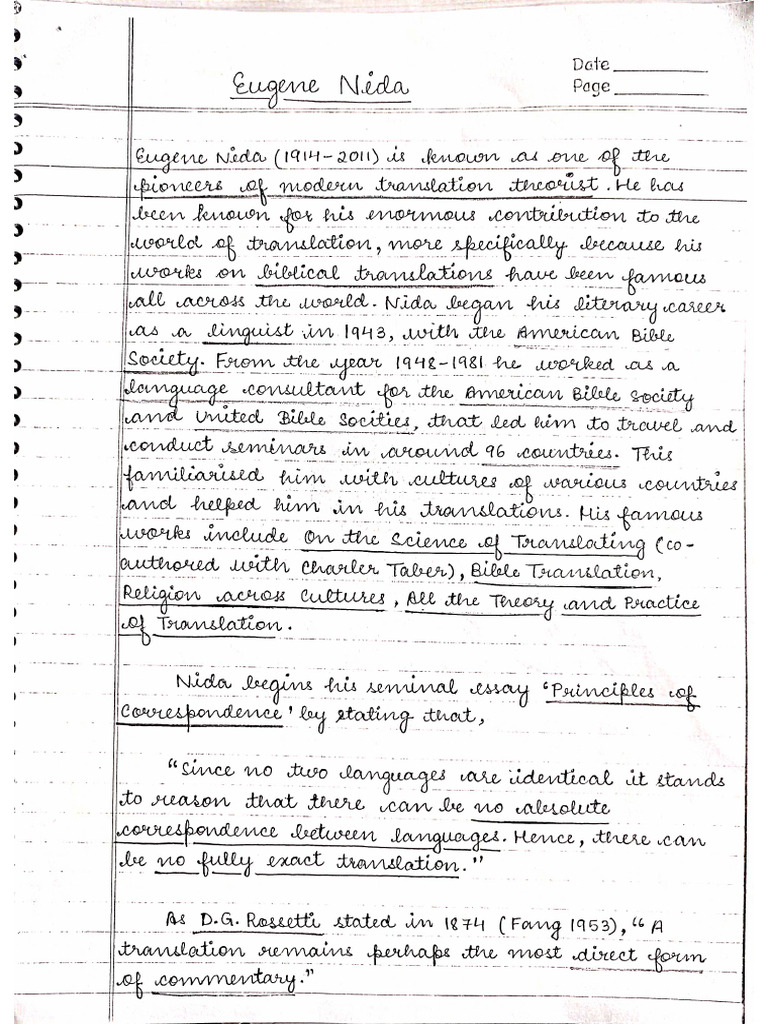 Date
Eugene Nida
Page
Eugene Nida (1914-2011) is known as one of the
pioneers of modern translation theorist. He has
been known for his enormous contribution to the
world of translation, more specifically because his
works on biblical translations have been famous
all across the world. Nida began his literary career
as a linguist in 1943, with the American Bible
Society. From the year 1948-1981 he worked as a
language consultant for the American Bible society
and United Bible Socities, that led him to travel and
conduct seminars in around 96 countries. This
familiarised him with cultures of various countries
and helped him in his translations. His famous
works include On the Science of Translating (co-
authored with Charler Taber), Bible Translation,
Religion across Cultures, All the Theory and Practice
of Translation.
Nida begins his seminal essay 'Principles of
Correspondence' by stating that,
"Since no two languages are identical it stands
to reason that there can be no absolute
correspondence between languages. Hence, there can
be no fully exact translation."
As D.G. Rossetti stated in 1874 (Fang 1953), "A
translation remains perhaps the most direct form
of commentary."